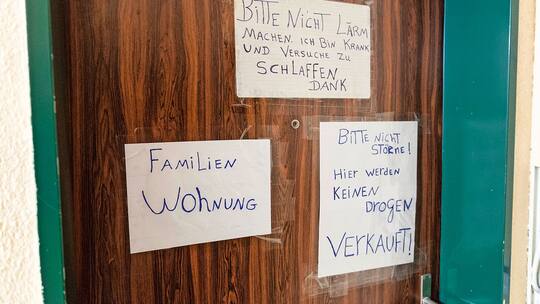 BITTE NICHT LÄRM
MACHEN. ICH BIN KRANK
UND VERSUCHE ZU
SCHLAFFEN
DANK
FAMILIEN
WOHNUNG
BITTE NICHT
STÖRNE!
HIER WERDEN
KEINEN
DROGEN
VERKAUFT!